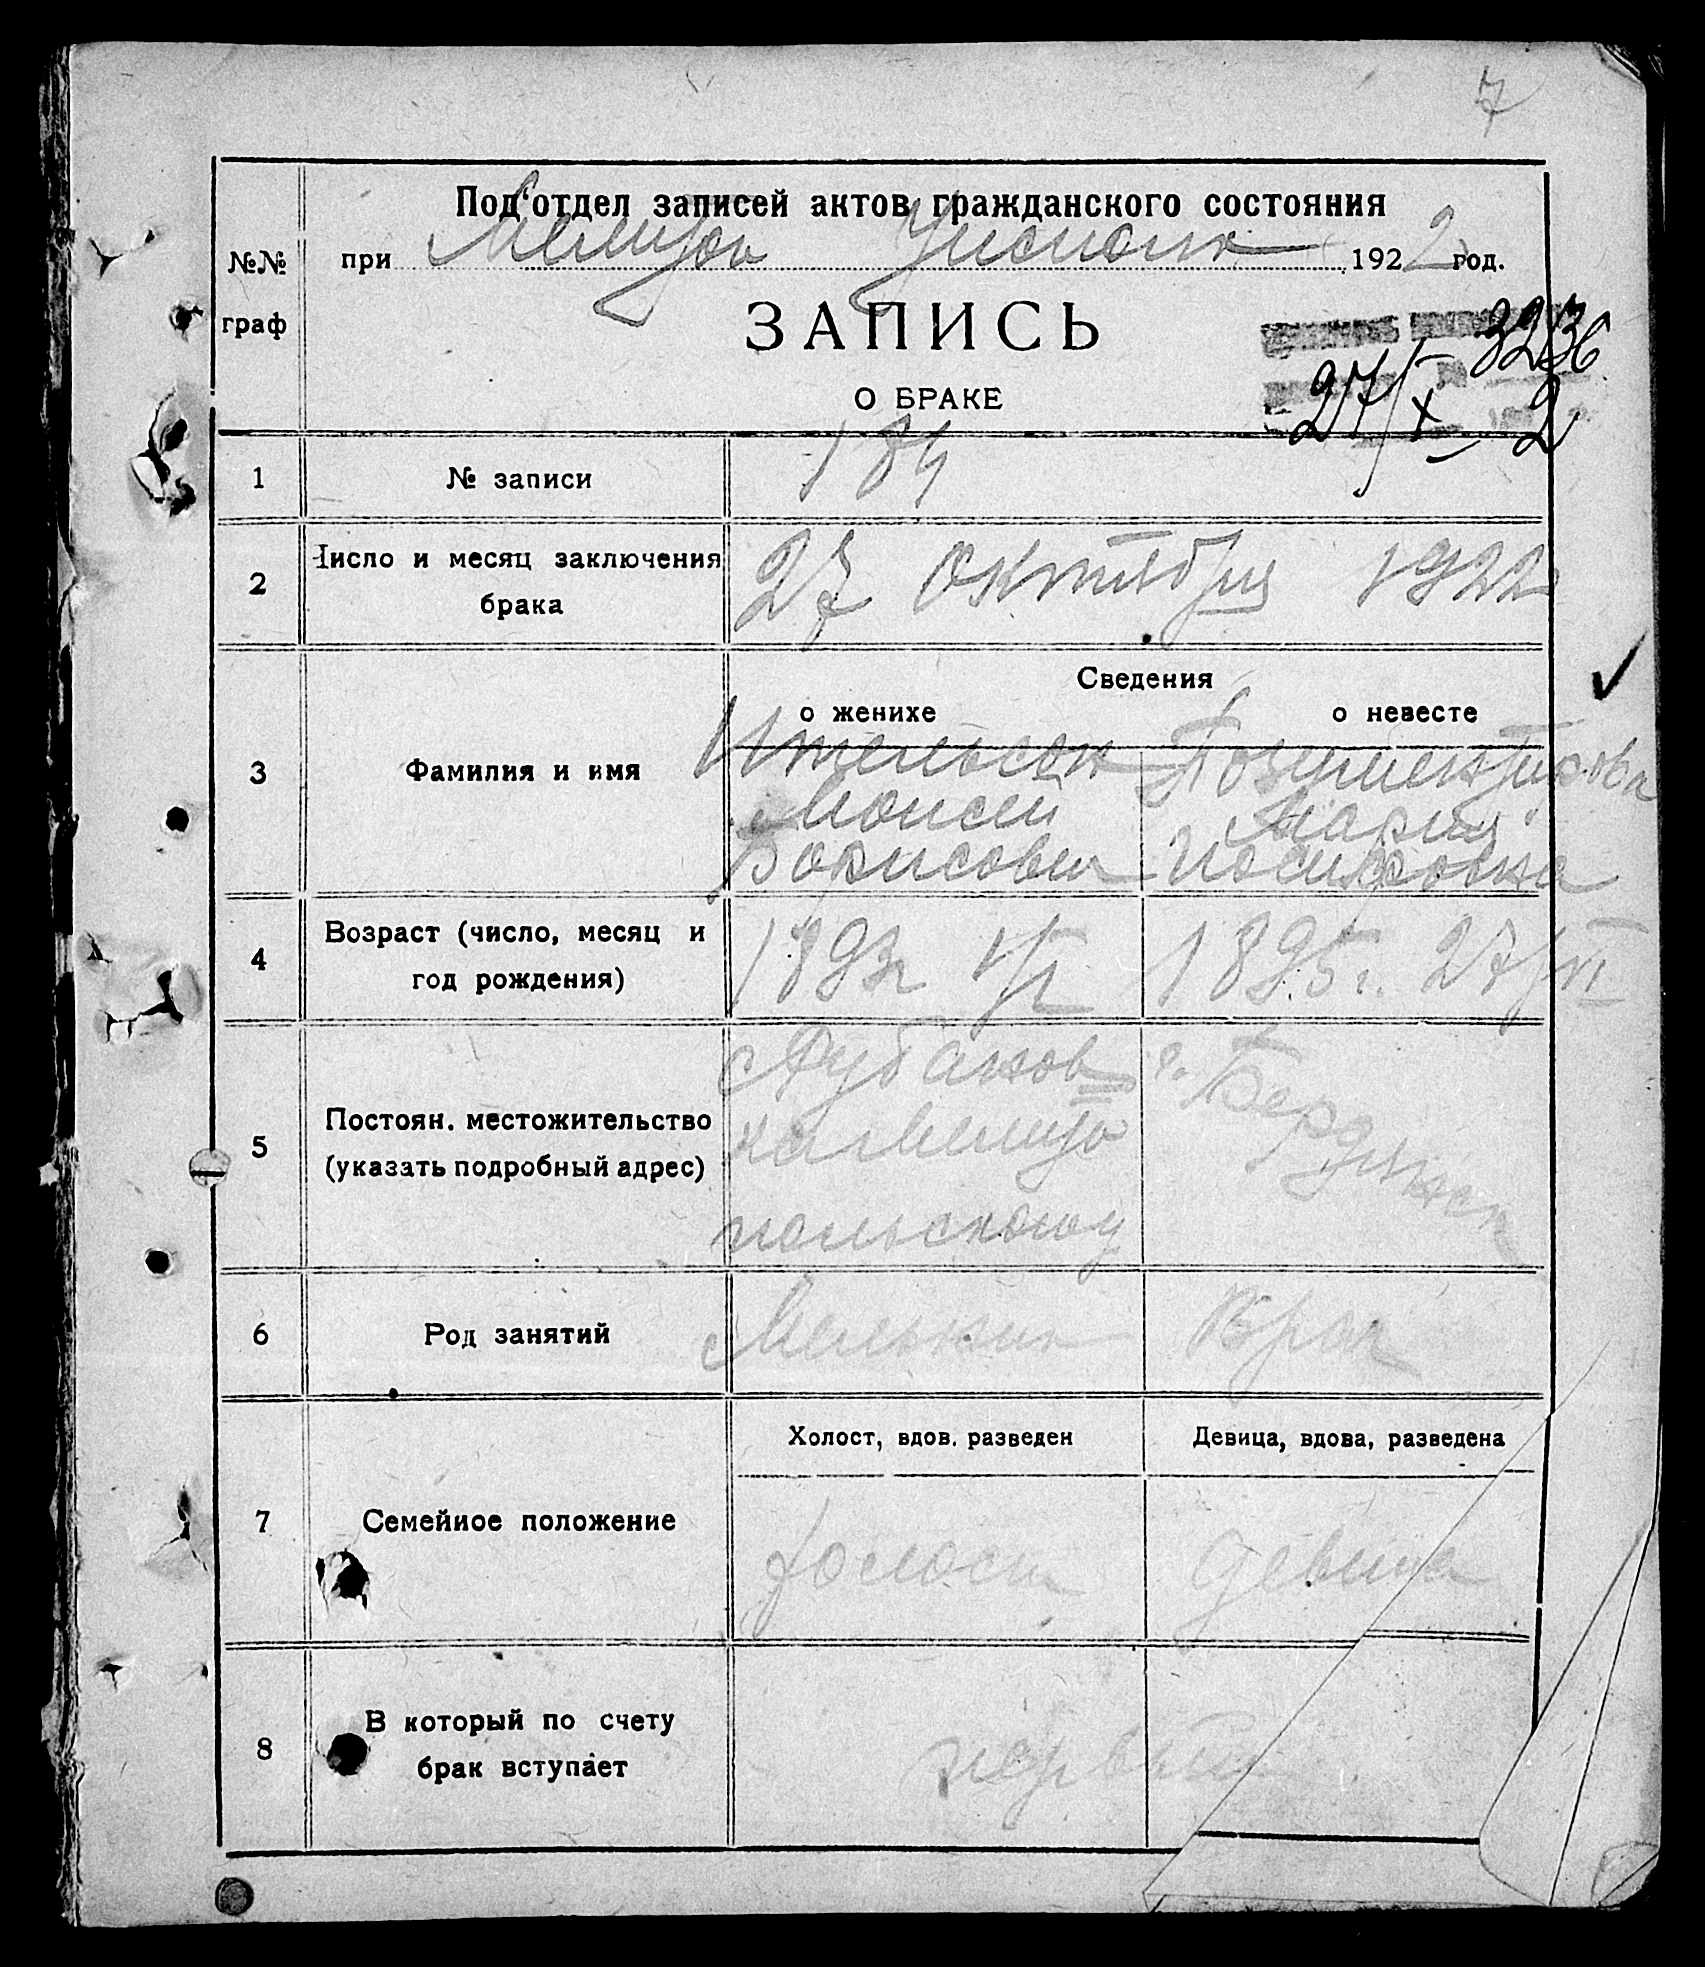 7
Под'отдел записей актов гражданского состояния
№№ граф
при Мелитоп Уисполк 1922 год.
ЗАПИСЬ
О БРАКЕ
3236
27/X 2
1 № записи 184
2 Число и месяц заключения брака 27 октября 1922
Сведения
о женихе о невесте
3 Фамилия и имя
Ительсон
Моисей
Борисович
Мария
Иосифовна
4 Возраст (число, месяц и
год рождения)
1893г 1895г. 27/VI
5 Постоян. местожительство
(указать подробный адрес)
г. Бердянск
польскому
6 Род занятий Мельник Врач
Холост, вдов. разведен Девица, вдова, разведена
7 Семейное положение холост девица
8 В который по счету
брак вступает
первый